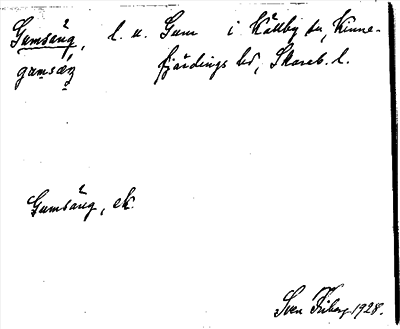 Gumsäng, l. u. Gum i Källby sn, Kinne-
gumsäŋ fjärdings hd, Skarab. l.
Gumsäng, ek.
Sven Friberg 1928.